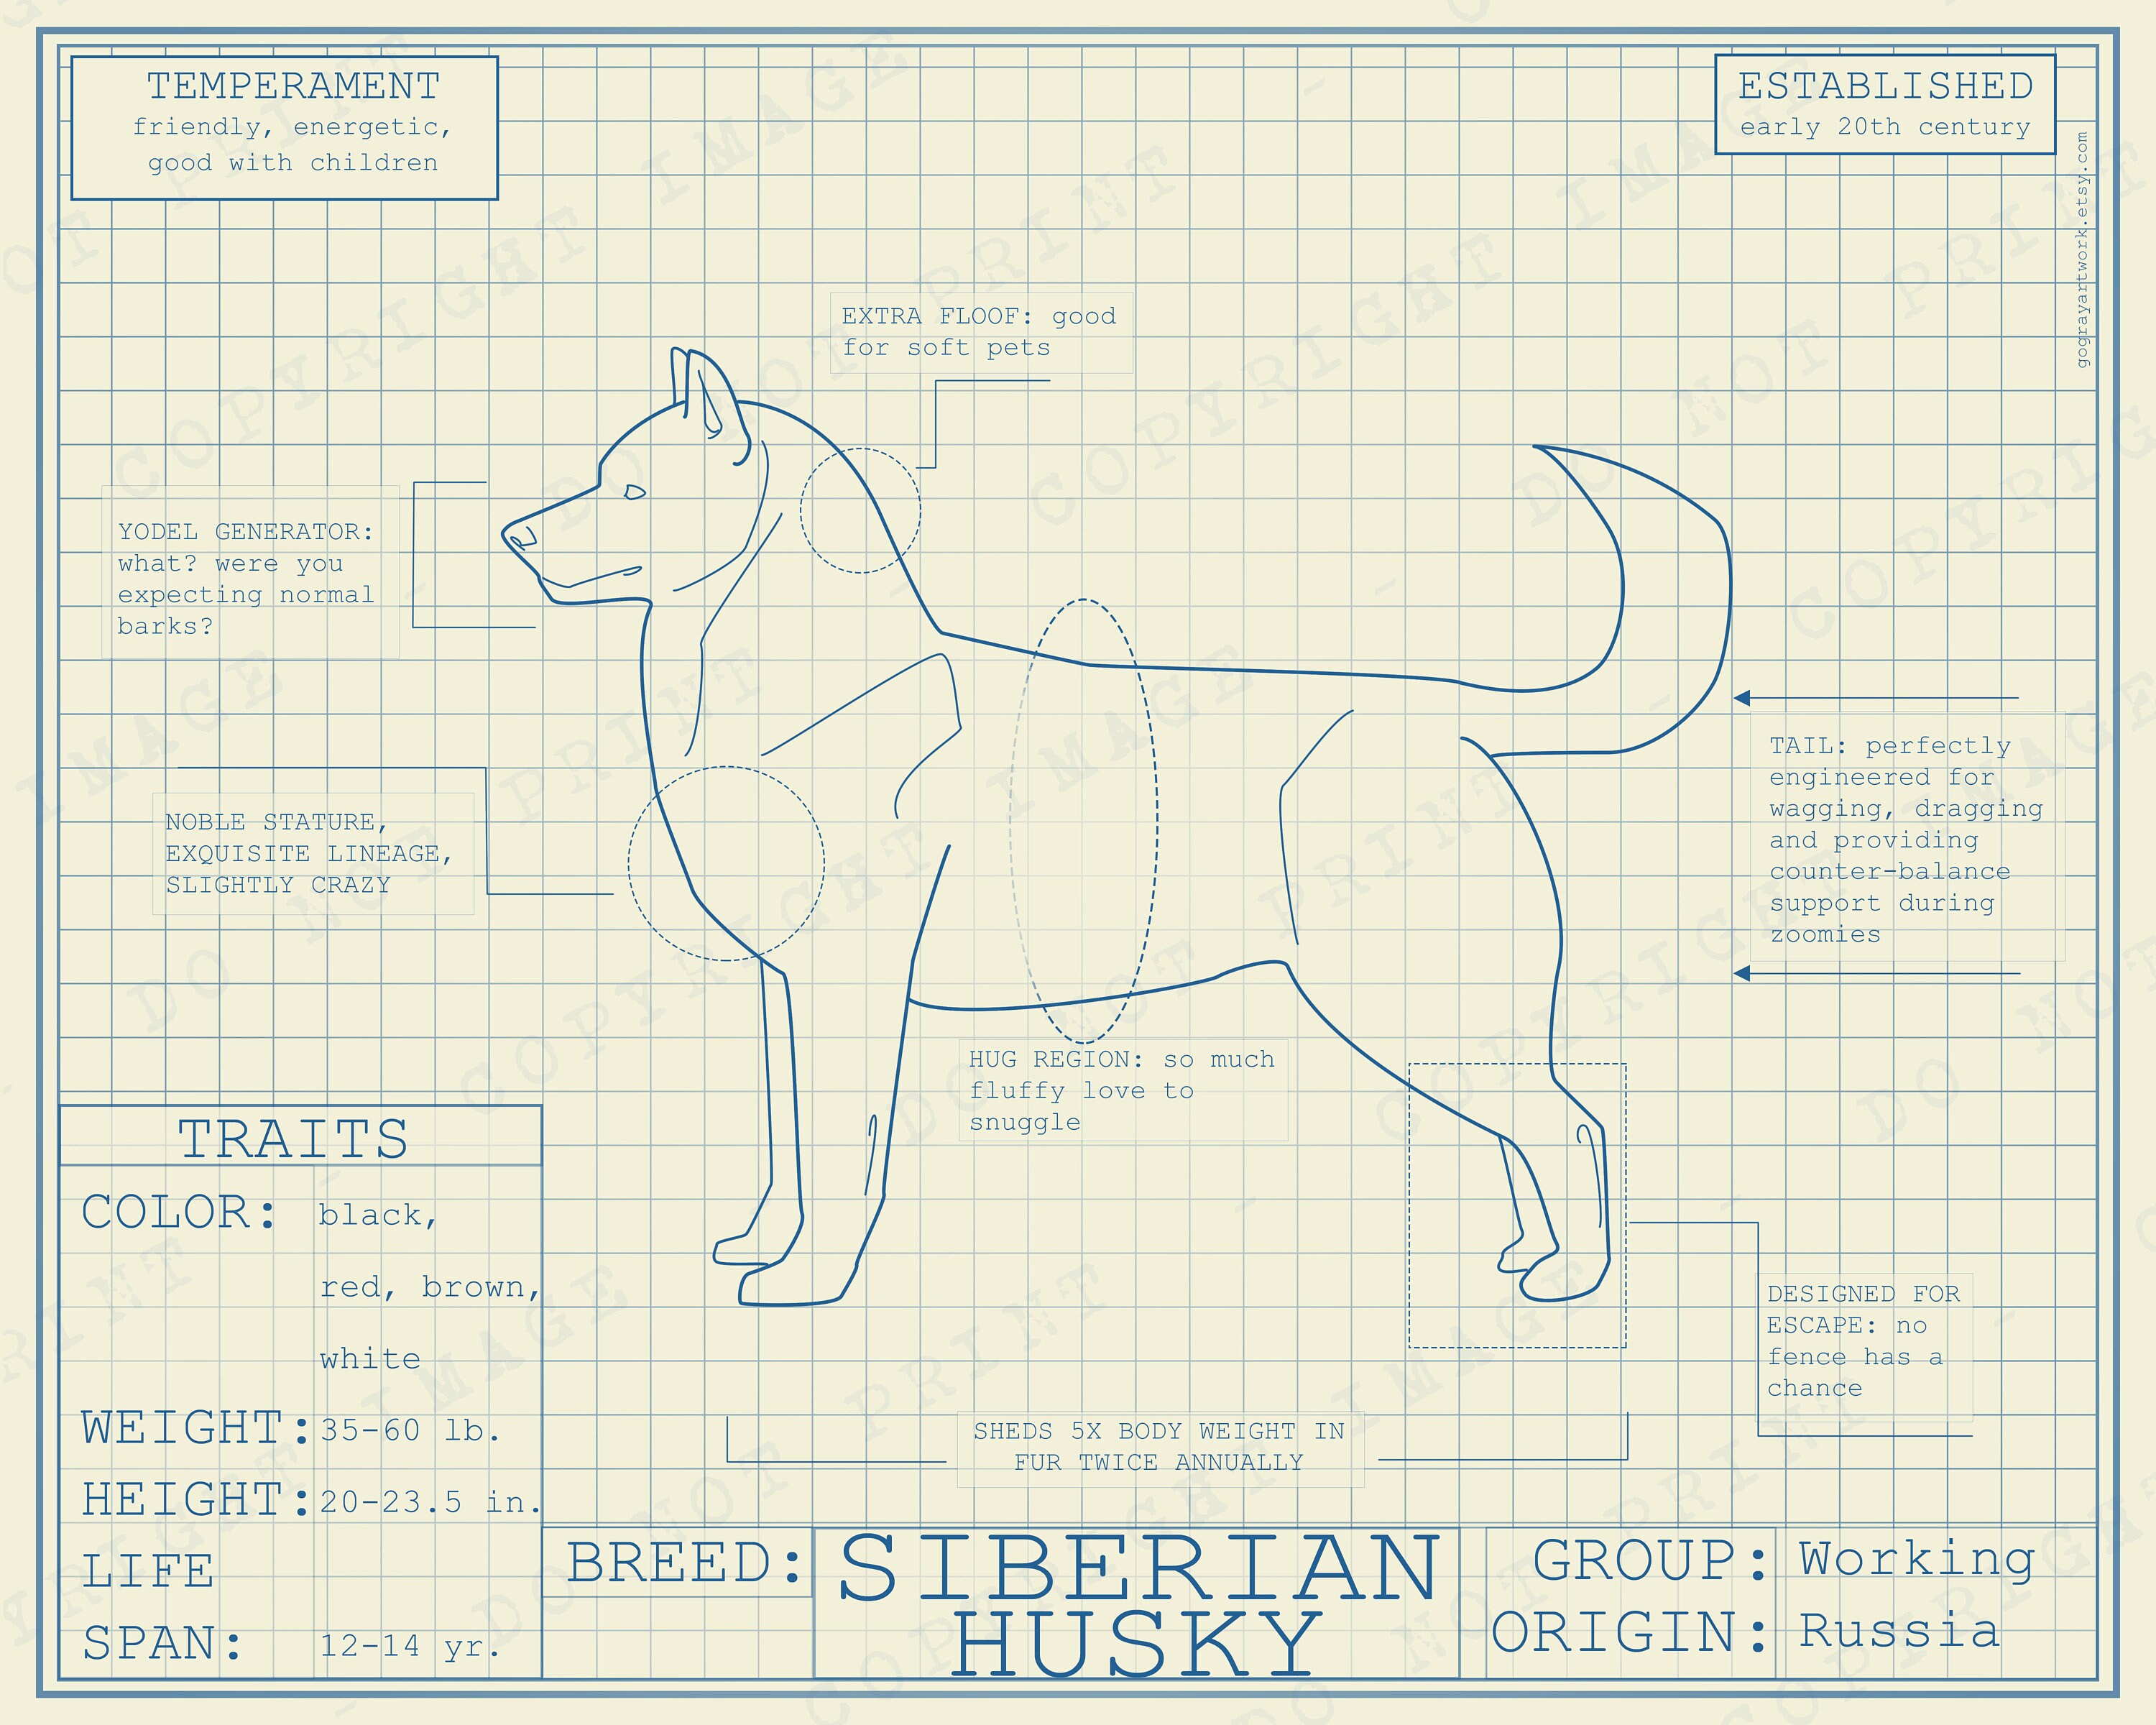 TEMPERAMENT
friendly, energetic,
good with children
ESTABLISHED
early 20th century
gograyartwork.etsy.com
EXTRA FLOOF: good
for soft pets
YODEL GENERATOR:
what? were you
expecting normal
barks?
NOBLE STATURE,
EXQUISITE LINEAGE,
SLIGHTLY CRAZY
TAIL: perfectly
engineered for
wagging, dragging
and providing
counter-balance
support during
zoomies
HUG REGION: so much
fluffy love to
snuggle
DESIGNED FOR
ESCAPE: no
fence has a
chance
SHEDS 5X BODY WEIGHT IN
FUR TWICE ANNUALLY
TRAITS
COLOR: black,
red, brown,
white
WEIGHT: 35-60 lb.
HEIGHT: 20-23.5 in.
LIFE
SPAN: 12-14 yr.
BREED: SIBERIAN
HUSKY
GROUP: Working
ORIGIN: Russia
COPYRIGHT IMAGE - DO NOT PRINT